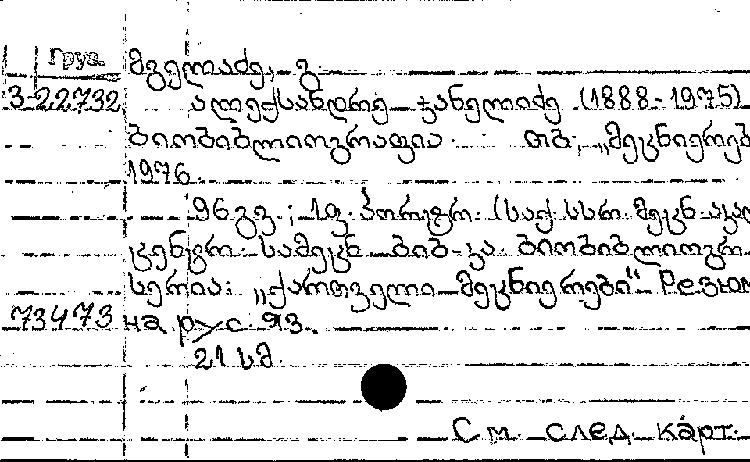 Груз.
მგელიაძე, გ.
3-22732 ალექსანდრე ჯანელიძე (1888-1975)
ბიობიბლიოგრაფია. თბ., „მეცნიერებ
1976.
96 გვ.; 1 ფ. პორტრ. (საქ. სსრ მეცნ. აკად
ცენტრ. სამეცნ. ბიბ-კა. ბიობიბლიოგრ.
სერია: „ქართველი მეცნიერები“ Резюм
73473 на рус. яз.
21 სმ.
См. след. карт.